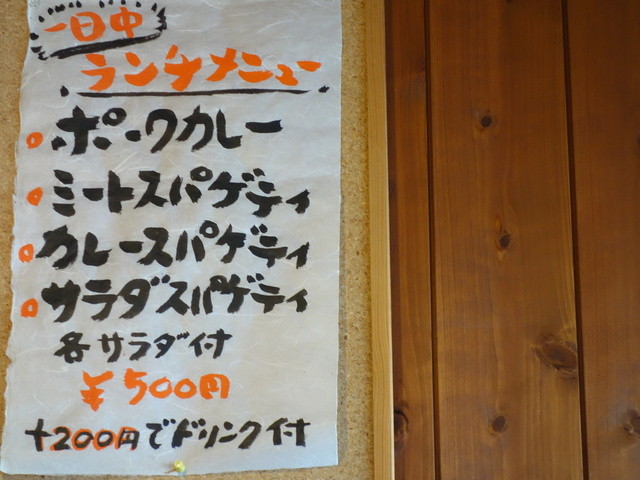 一日中
ランチメニュー
ポークカレー
ミートスパゲティ
カレースパゲティ
サラダスパゲティ
各サラダ付
¥500円
+200円でドリンク付